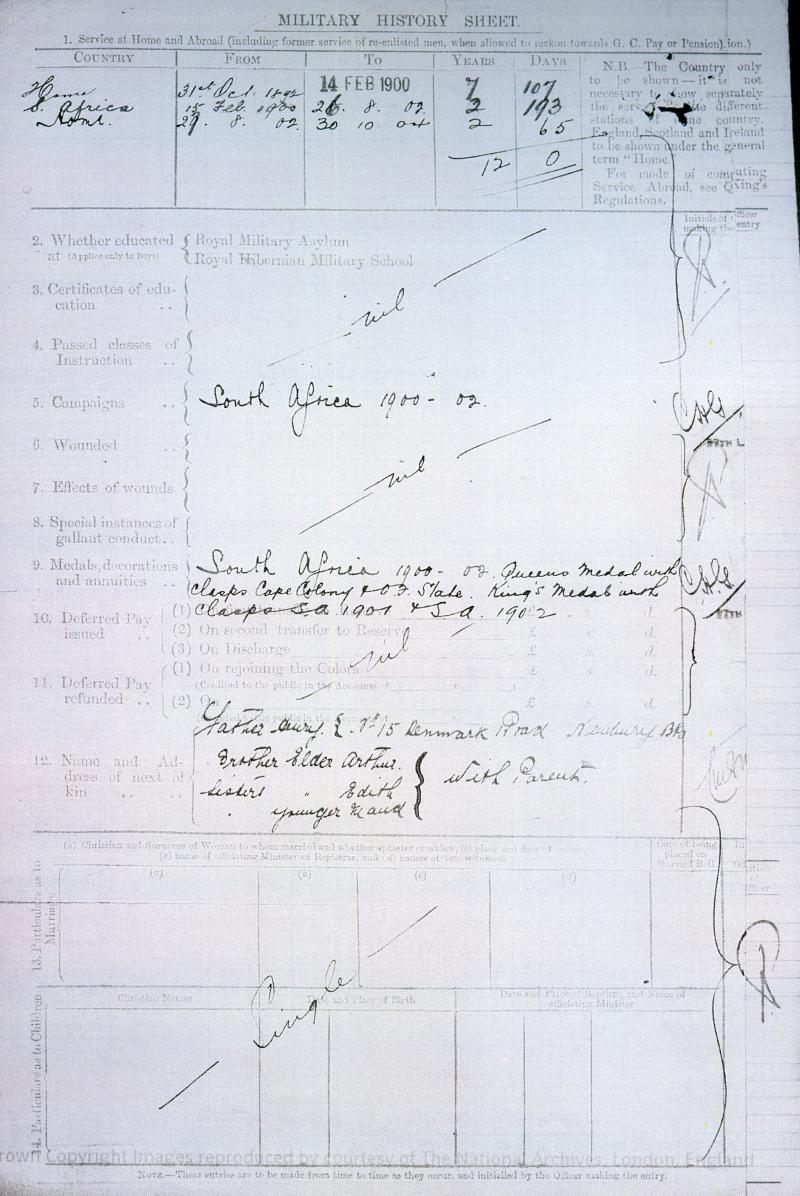 MILITARY HISTORY SHEET.
1. Service at Home and Abroad (including former service of re-enlisted men, when allowed to reckon towards G. C. Pay or Pension).ion.)
COUNTRY FROM TO YEARS DAYS
Home 31st Oct. 1892 14 FEB 1900 7 107
S. Africa 15 Feb. 1900 26 8. 02 2 193
Home. 27. 8. 02 30 10 04 2 65
12 0
N.B. The Country only
to be shown—it is not
necessary to show separately
the different
stations country.
England, Scotland and Ireland
to be shown under the general
term "Home."
For mode of computing
Service Abroad, see King's
Regulations.
Initials of Officer
making the entry
2. Whether educated at (Applies only to Boys) Royal Military Asylum
Royal Hibernian Military School
3. Certificates of education ..
nil
4. Passed classes of Instruction ..
5. Campaigns .. South Africa 1900 - 02.
6. Wounded ..
nil
7. Effects of wounds
8. Special instances of gallant conduct..
9. Medals, decorations and annuities South Africa 1900 - 02. Queens Medal with
clasps Cape Colony & O.F. State. King's Medal with
clasps S.A. 1901 & S.A. 1902.
10. Deferred Pay issued .. (1)
(2) On second transfer to Reserve £ s. d.
(3) On Discharge £ s. d.
nil
11. Deferred Pay refunded .. (1) On rejoining the Colors £ s. d.
(Credited to the public in the Accounts of
(2) On £ s. d.
12. Name and Address of next of kin .. Father Henry. 15 Denmark Road Newbury Bks
Brother Elder Arthur.
Sisters " Edith
younger Maud
with Parents.
13. Particulars as to Marriage
(a) Christian and Surname of Woman to whom married and whether spinster or widow, (b) place and date of marriage,
(c) name of officiating Minister or Registrar, and (d) names of two witnesses
Date of being placed on Married Roll
(a) (b) (c) (d)
Single
14. Particulars as to Children
Christian Names Date and Place of Birth Date and Place of Baptism, and Name of officiating Minister
rown Copyright Images reproduced by courtesy of The National Archives, London, England
NOTE.—These entries are to be made from time to time as they occur, and initialled by the Officer making the entry.